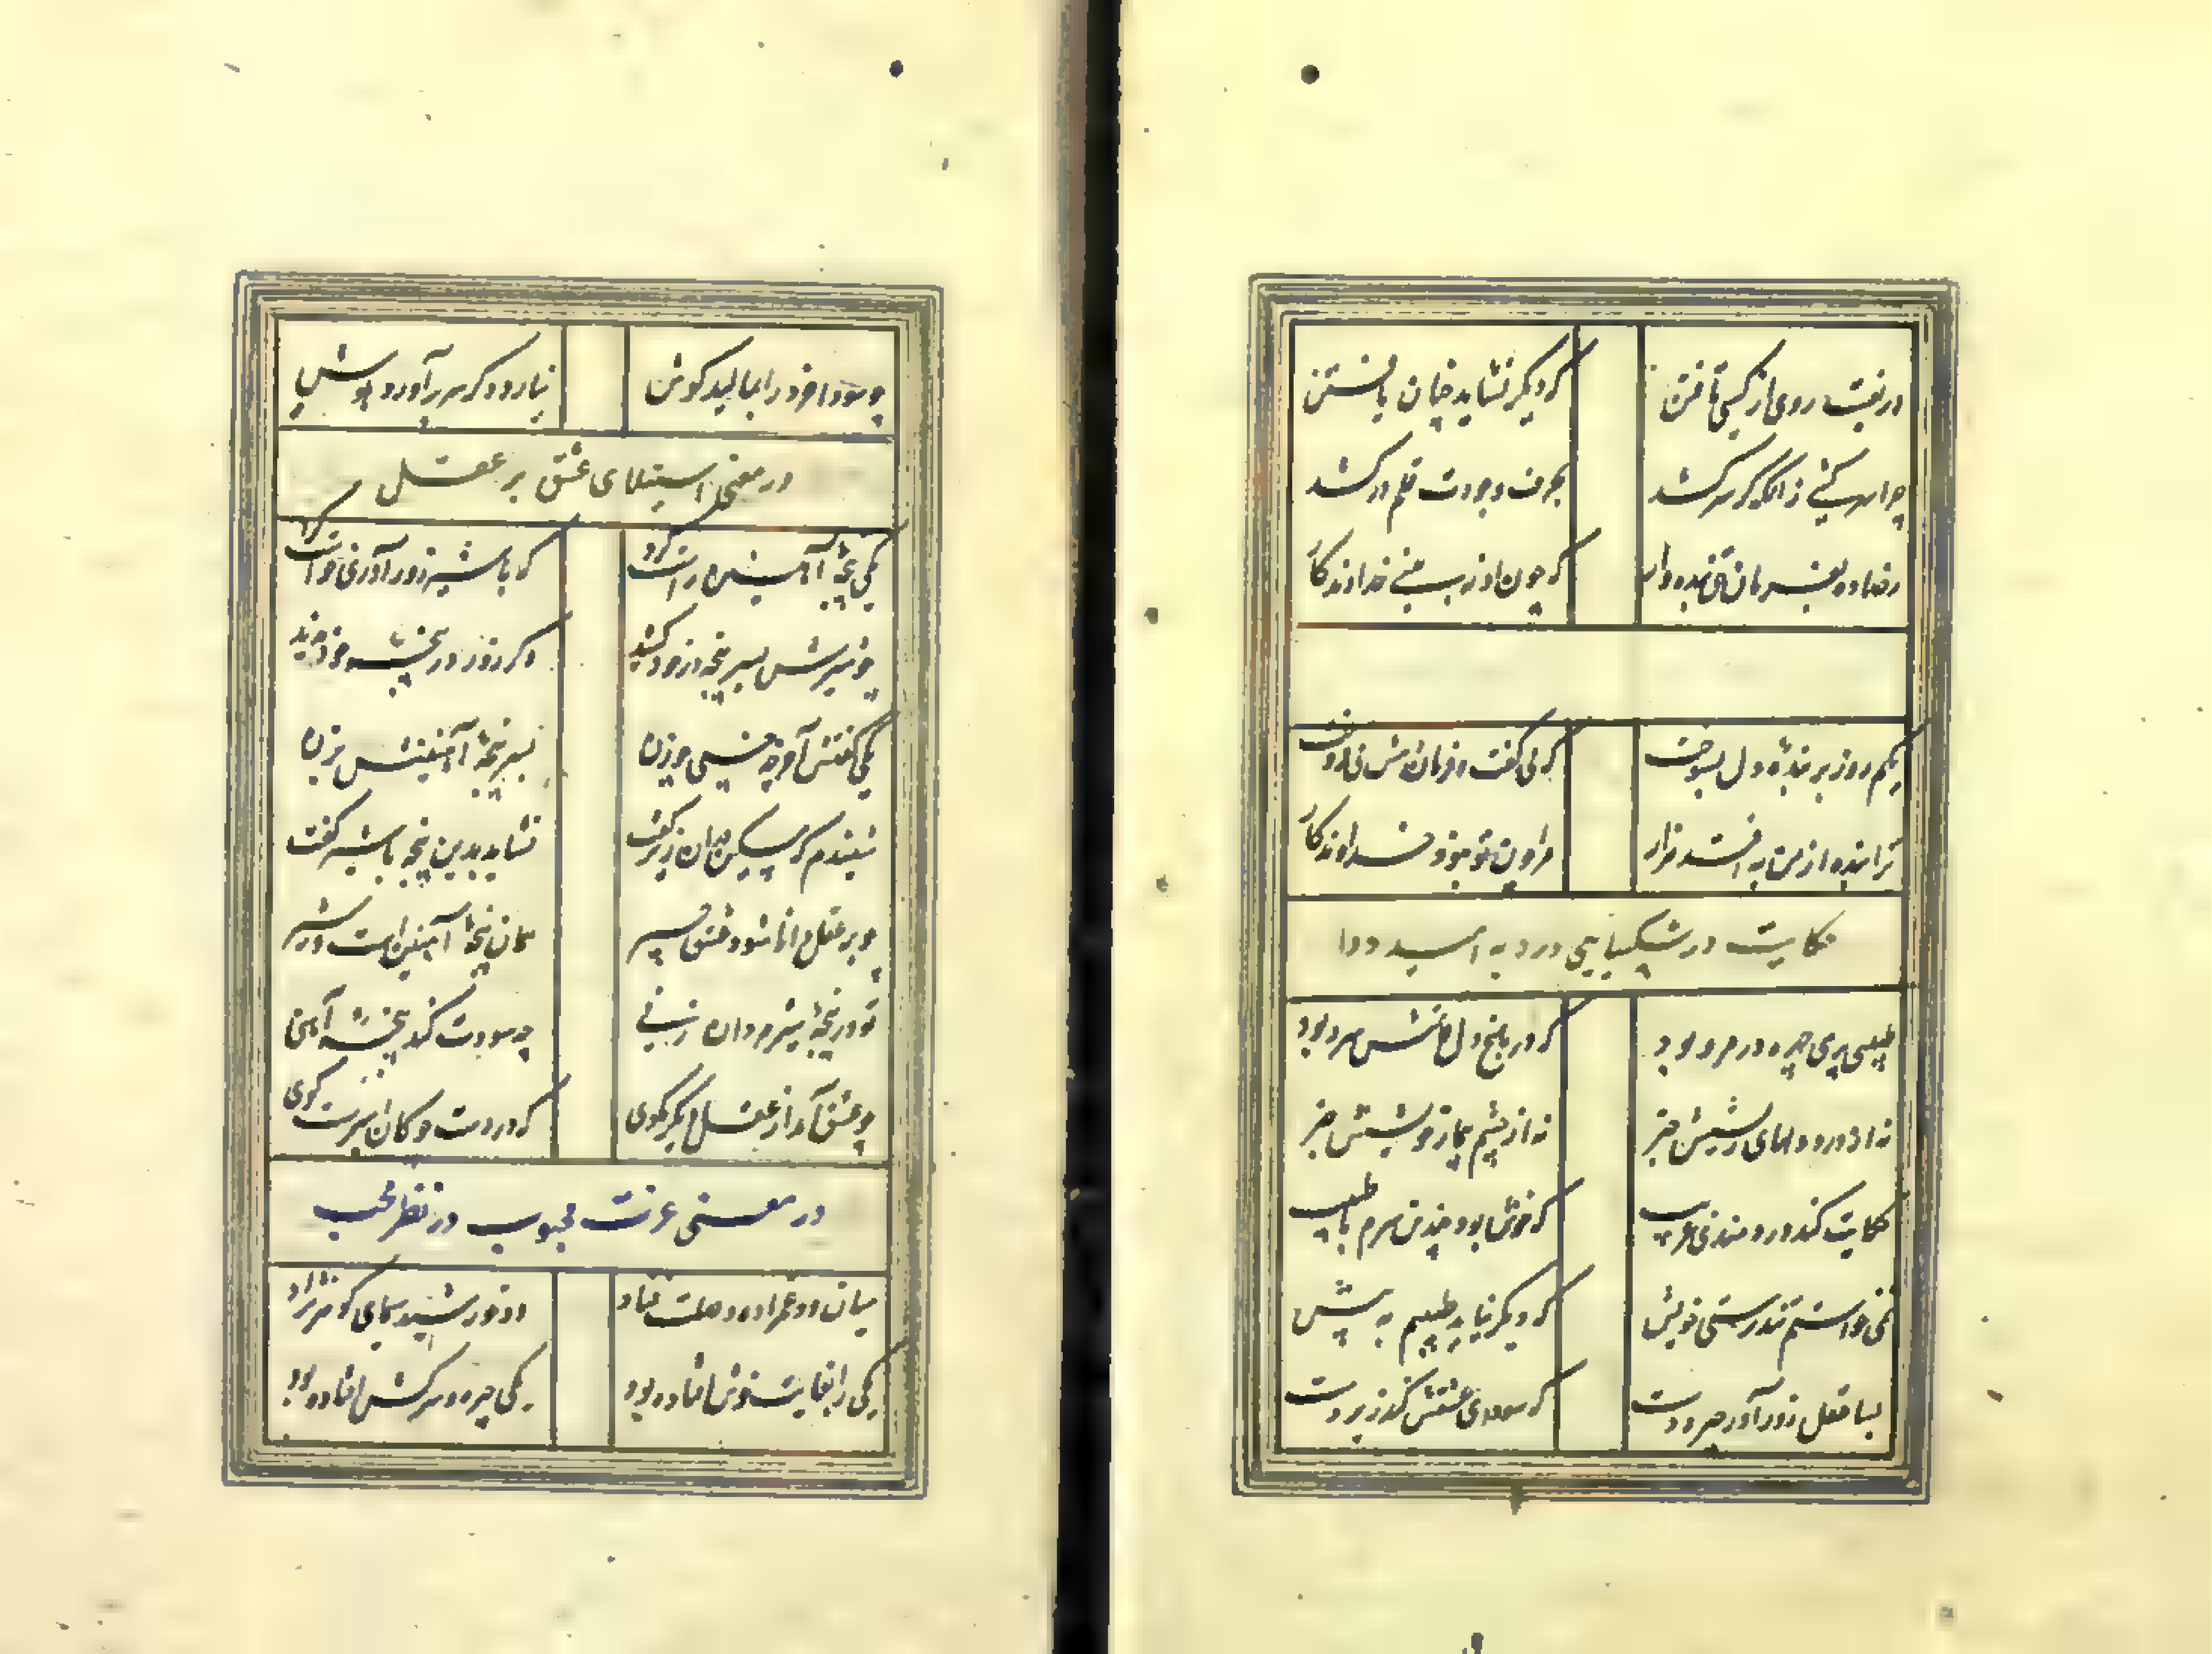 دریغست روی از کسی تافتن
که دیگر نشاید چنان یافتن
چو ابرو کشی زانکه گر سر کشد
بحرف وجودت قلم در کشد
رضا ده بفرمان حق بنده وار
که چون او نه بینی خداوندگار
یکم روز بر بنده دل بسوخت
که می گفت و فرماندهش می فروخت
ترا بنده از من به افتد هزار
مرا چون تو نبود خداوندگار
حکایت در شکیبایی درد به امید دوا
طبیبی پری چهره در مرو بود
که در باغ دل قامتش سرو بود
نه از درد دلهای ریشش خبر
نه از چشم بیمار خویشش خبر
حکایت کند دردمندی غریب
که خوش بود چندی سرم با طبیب
نمی خواستم تندرستی خویش
که دیگر نیاید طبیبم به پیش
بسا عقل زورآور چیر دست
که سودای عشقش کند زیر دست
چو سودا خرد را بمالید گوش
نیارد دگر سر برآورد هوش
در معنی استیلای عشق بر عقل
یکی پنجه آهنین راست کرد
که با شیر زورآوری خواست کرد
چو شیرش بسر پنجه در خود کشید
دگر زور در پنجه خود ندید
یکی گفتش آخر چه خسبی چو زن
بسر پنجه آهنینش بزن
شنیدم که مسکین در آن زیر گفت
نشاید بدین پنجه با شیر گفت
چو بر عقل دانا شود عشق چیر
همان پنجه آهنین است و شیر
تو در پنجه شیر مردان زنی
چه سودت کند پنجه آهنی
چو عشق آمد از عقل دیگر مگوی
که در دست چوگان اسیرست گوی
در معنی عزت محبوب در نظر محب
میان دو عمزاده وصلت فتاد
دو خورشید سیمای گوهر نژاد
یکی را بغایت خوش افتاده بود
یکی چیره و سرکش افتاده بود